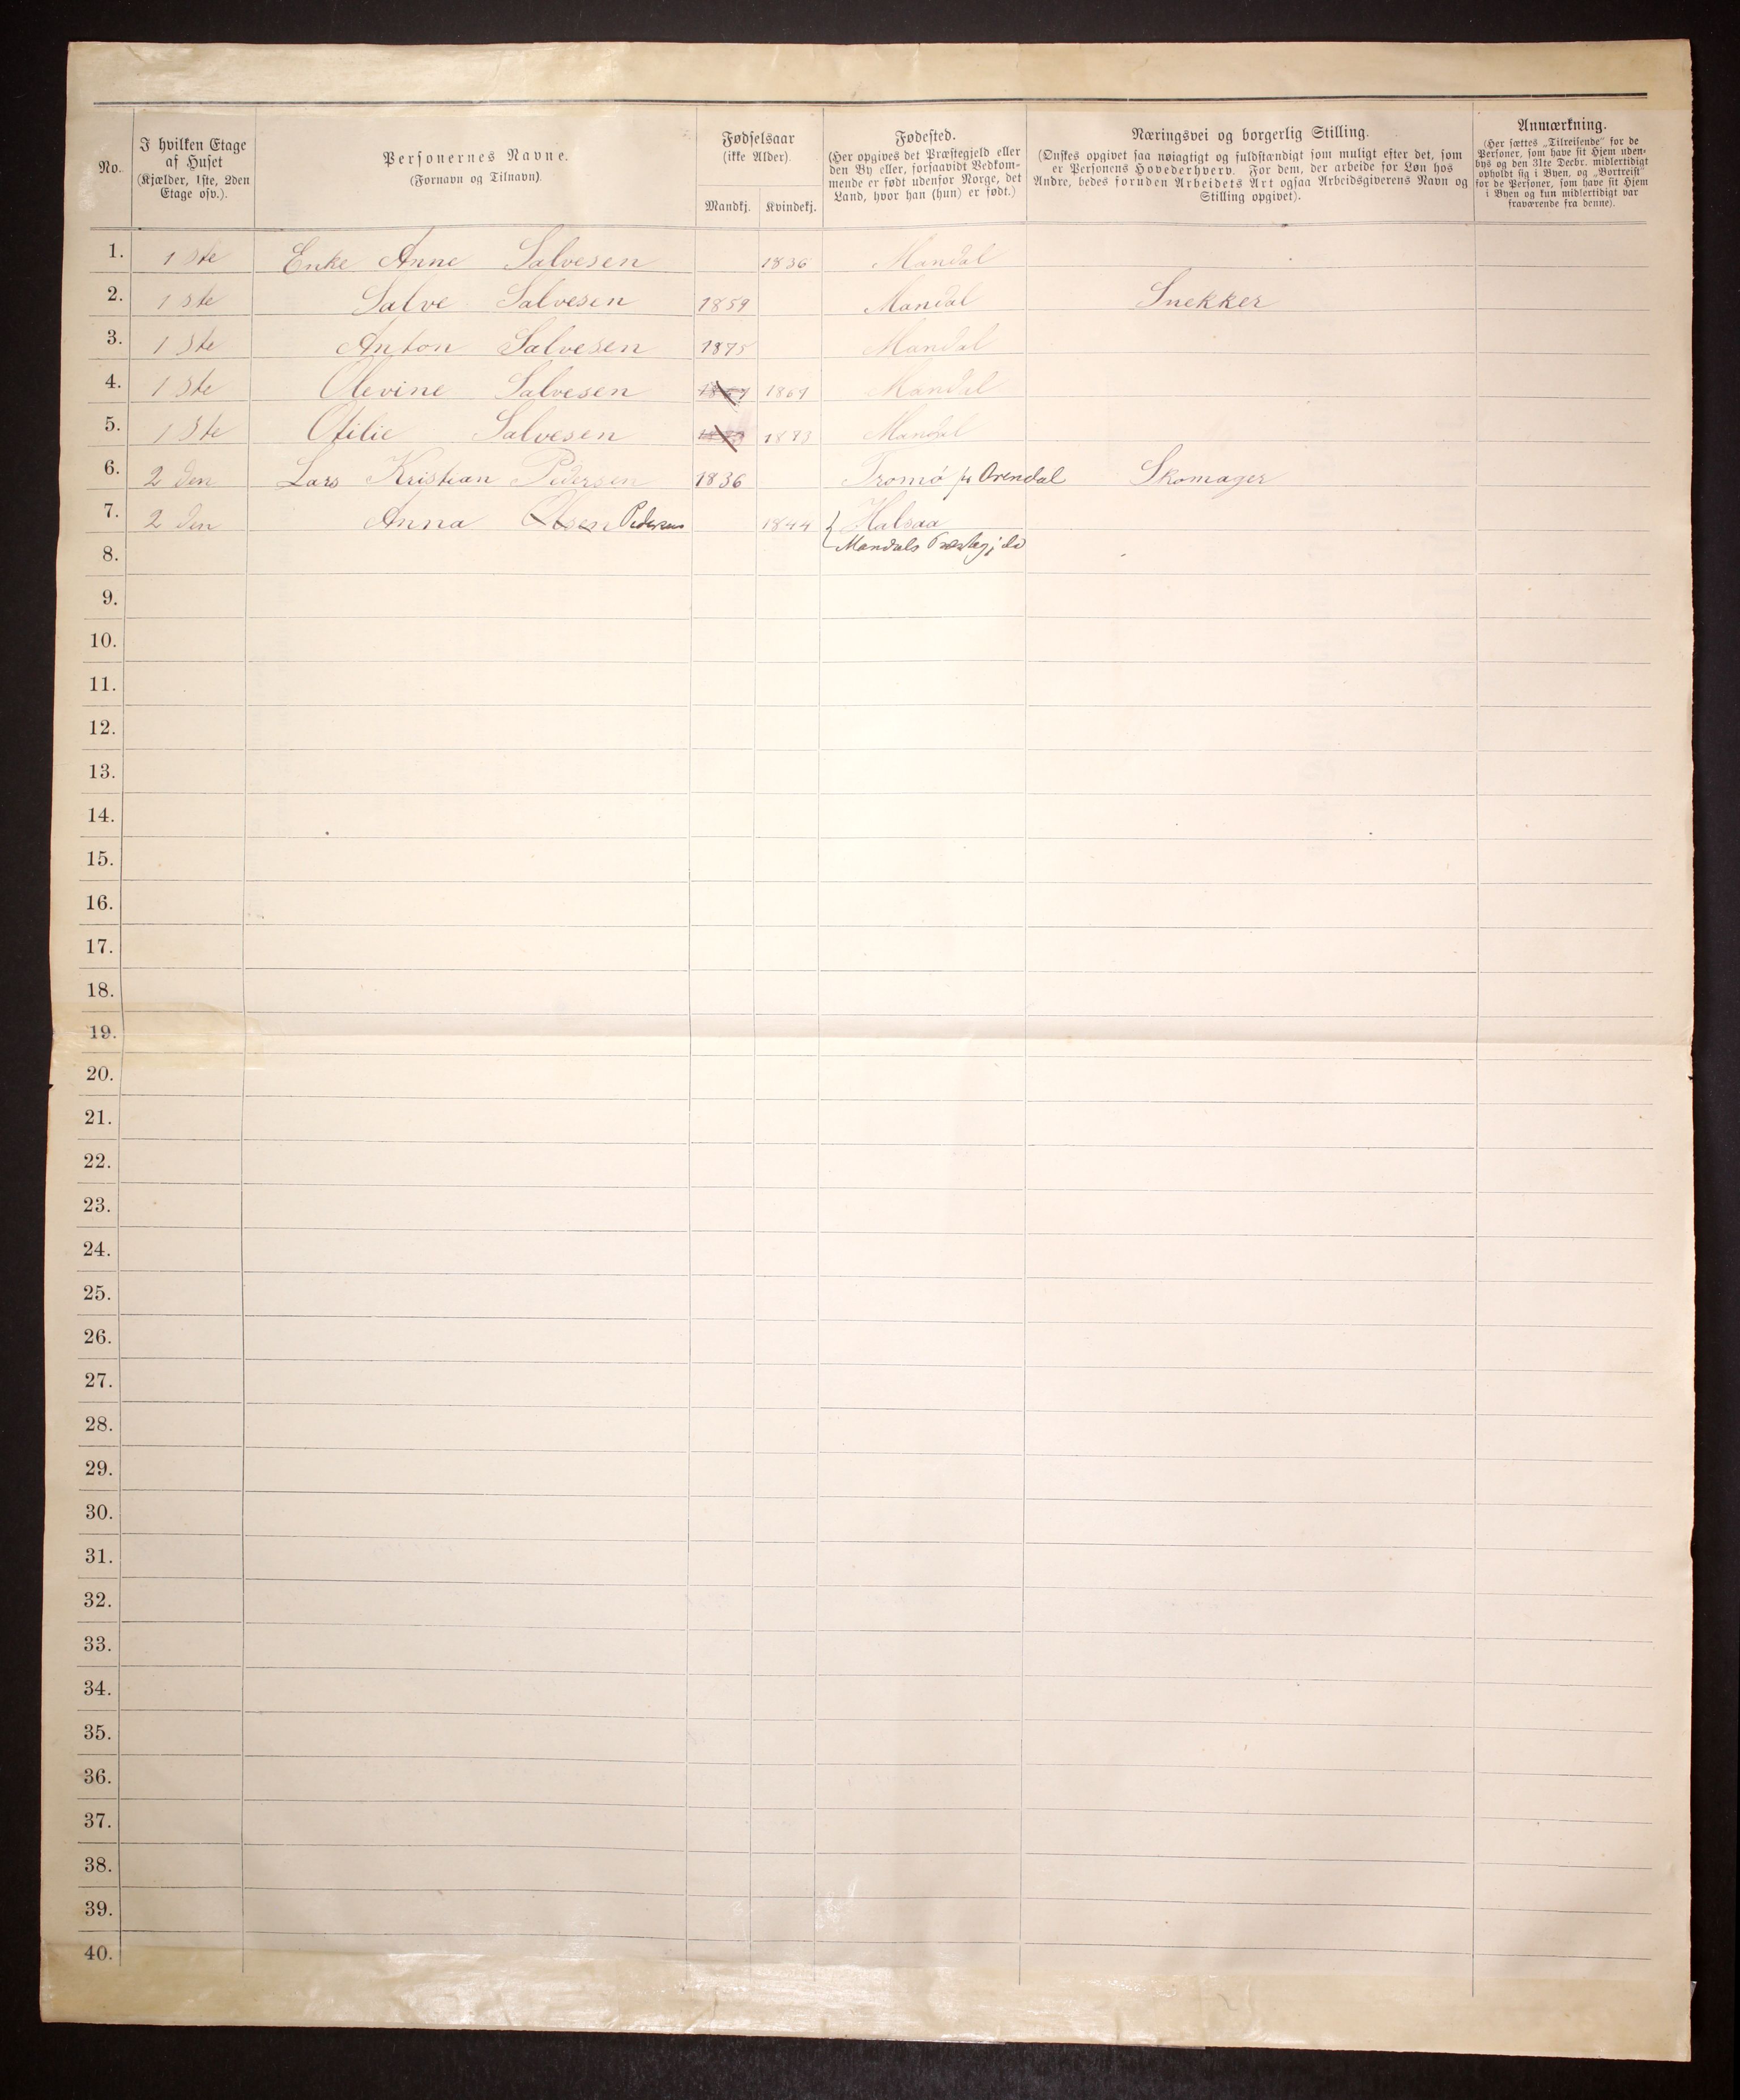 No.
I hvilken Etage
af Huset
(Kjælder, 1ste, 2den
Etage osv.).
Personernes Navne.
(Fornavn og Tilnavn).
Fødselsaar
(ikke Alder).
Mandkj. Kvindekj.
Fødested.
(Her opgives det Præstegjeld eller
den By eller, forsaavidt Vedkom-
mende er født udenfor Norge, det
Land, hvor han (hun) er født.)
Næringsvei og borgerlig Stilling.
(Ønskes opgivet saa nøiagtigt og fuldstændigt som muligt efter det, som
er Personens Hovederhverv. For dem, der arbeide for Løn hos
Andre, bedes foruden Arbeidets Art ogsaa Arbeidsgiverens Navn og
Stilling opgivet).
Anmærkning.
(Her sættes „Tilreisende" for de
Personer, som have sit Hjem uden-
bys og den 31te Decbr. midlertidigt
opholdt sig i Byen, og „Bortreist"
for de Personer, som have sit Hjem
i Byen og kun midlertidigt var
fraværende fra denne).
1. 1ste Enke Anne Salvesen 1836 Mandal
2. 1ste Salve Salvesen 1859 Mandal Snekker
3. 1ste Anton Salvesen 1875 Mandal
4. 1ste Olevine Salvesen 1869 Mandal
5. 1ste Otilie Salvesen 1873 Mandal
6. 2den Lars Kristian Pedersen 1836 Tromø pr Arendal Skomager
7. 2den Anna Olsen Pedersen 1844 Halsaa
8. Mandals Præstegjeld
9.
10.
11.
12.
13.
14.
15.
16.
17.
18.
19.
20.
21.
22.
23.
24.
25.
26.
27.
28.
29.
30.
31.
32.
33.
34.
35.
36.
37.
38.
39.
40.